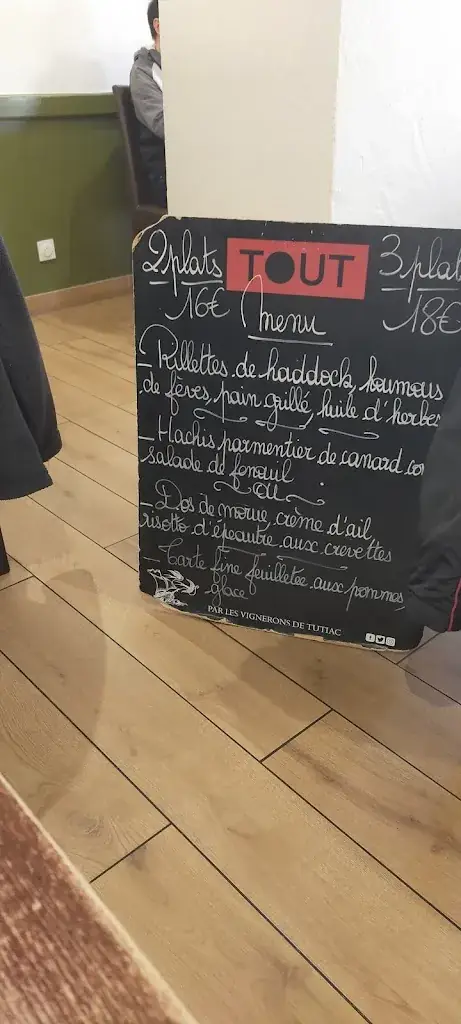 2 plats TOUT 3 plat
16€ Menu 18€
_ Rillettes de haddock, houmous
de fèves, pain grillé, huile d'herbes
_ Hachis parmentier de canard
salade de fenouil
ou
_ Dos de morue, crème d'ail,
risotto d'épeautre aux crevettes
_ Tarte fine feuilletée aux pommes,
glace
PAR LES VIGNERONS DE TUTIAC